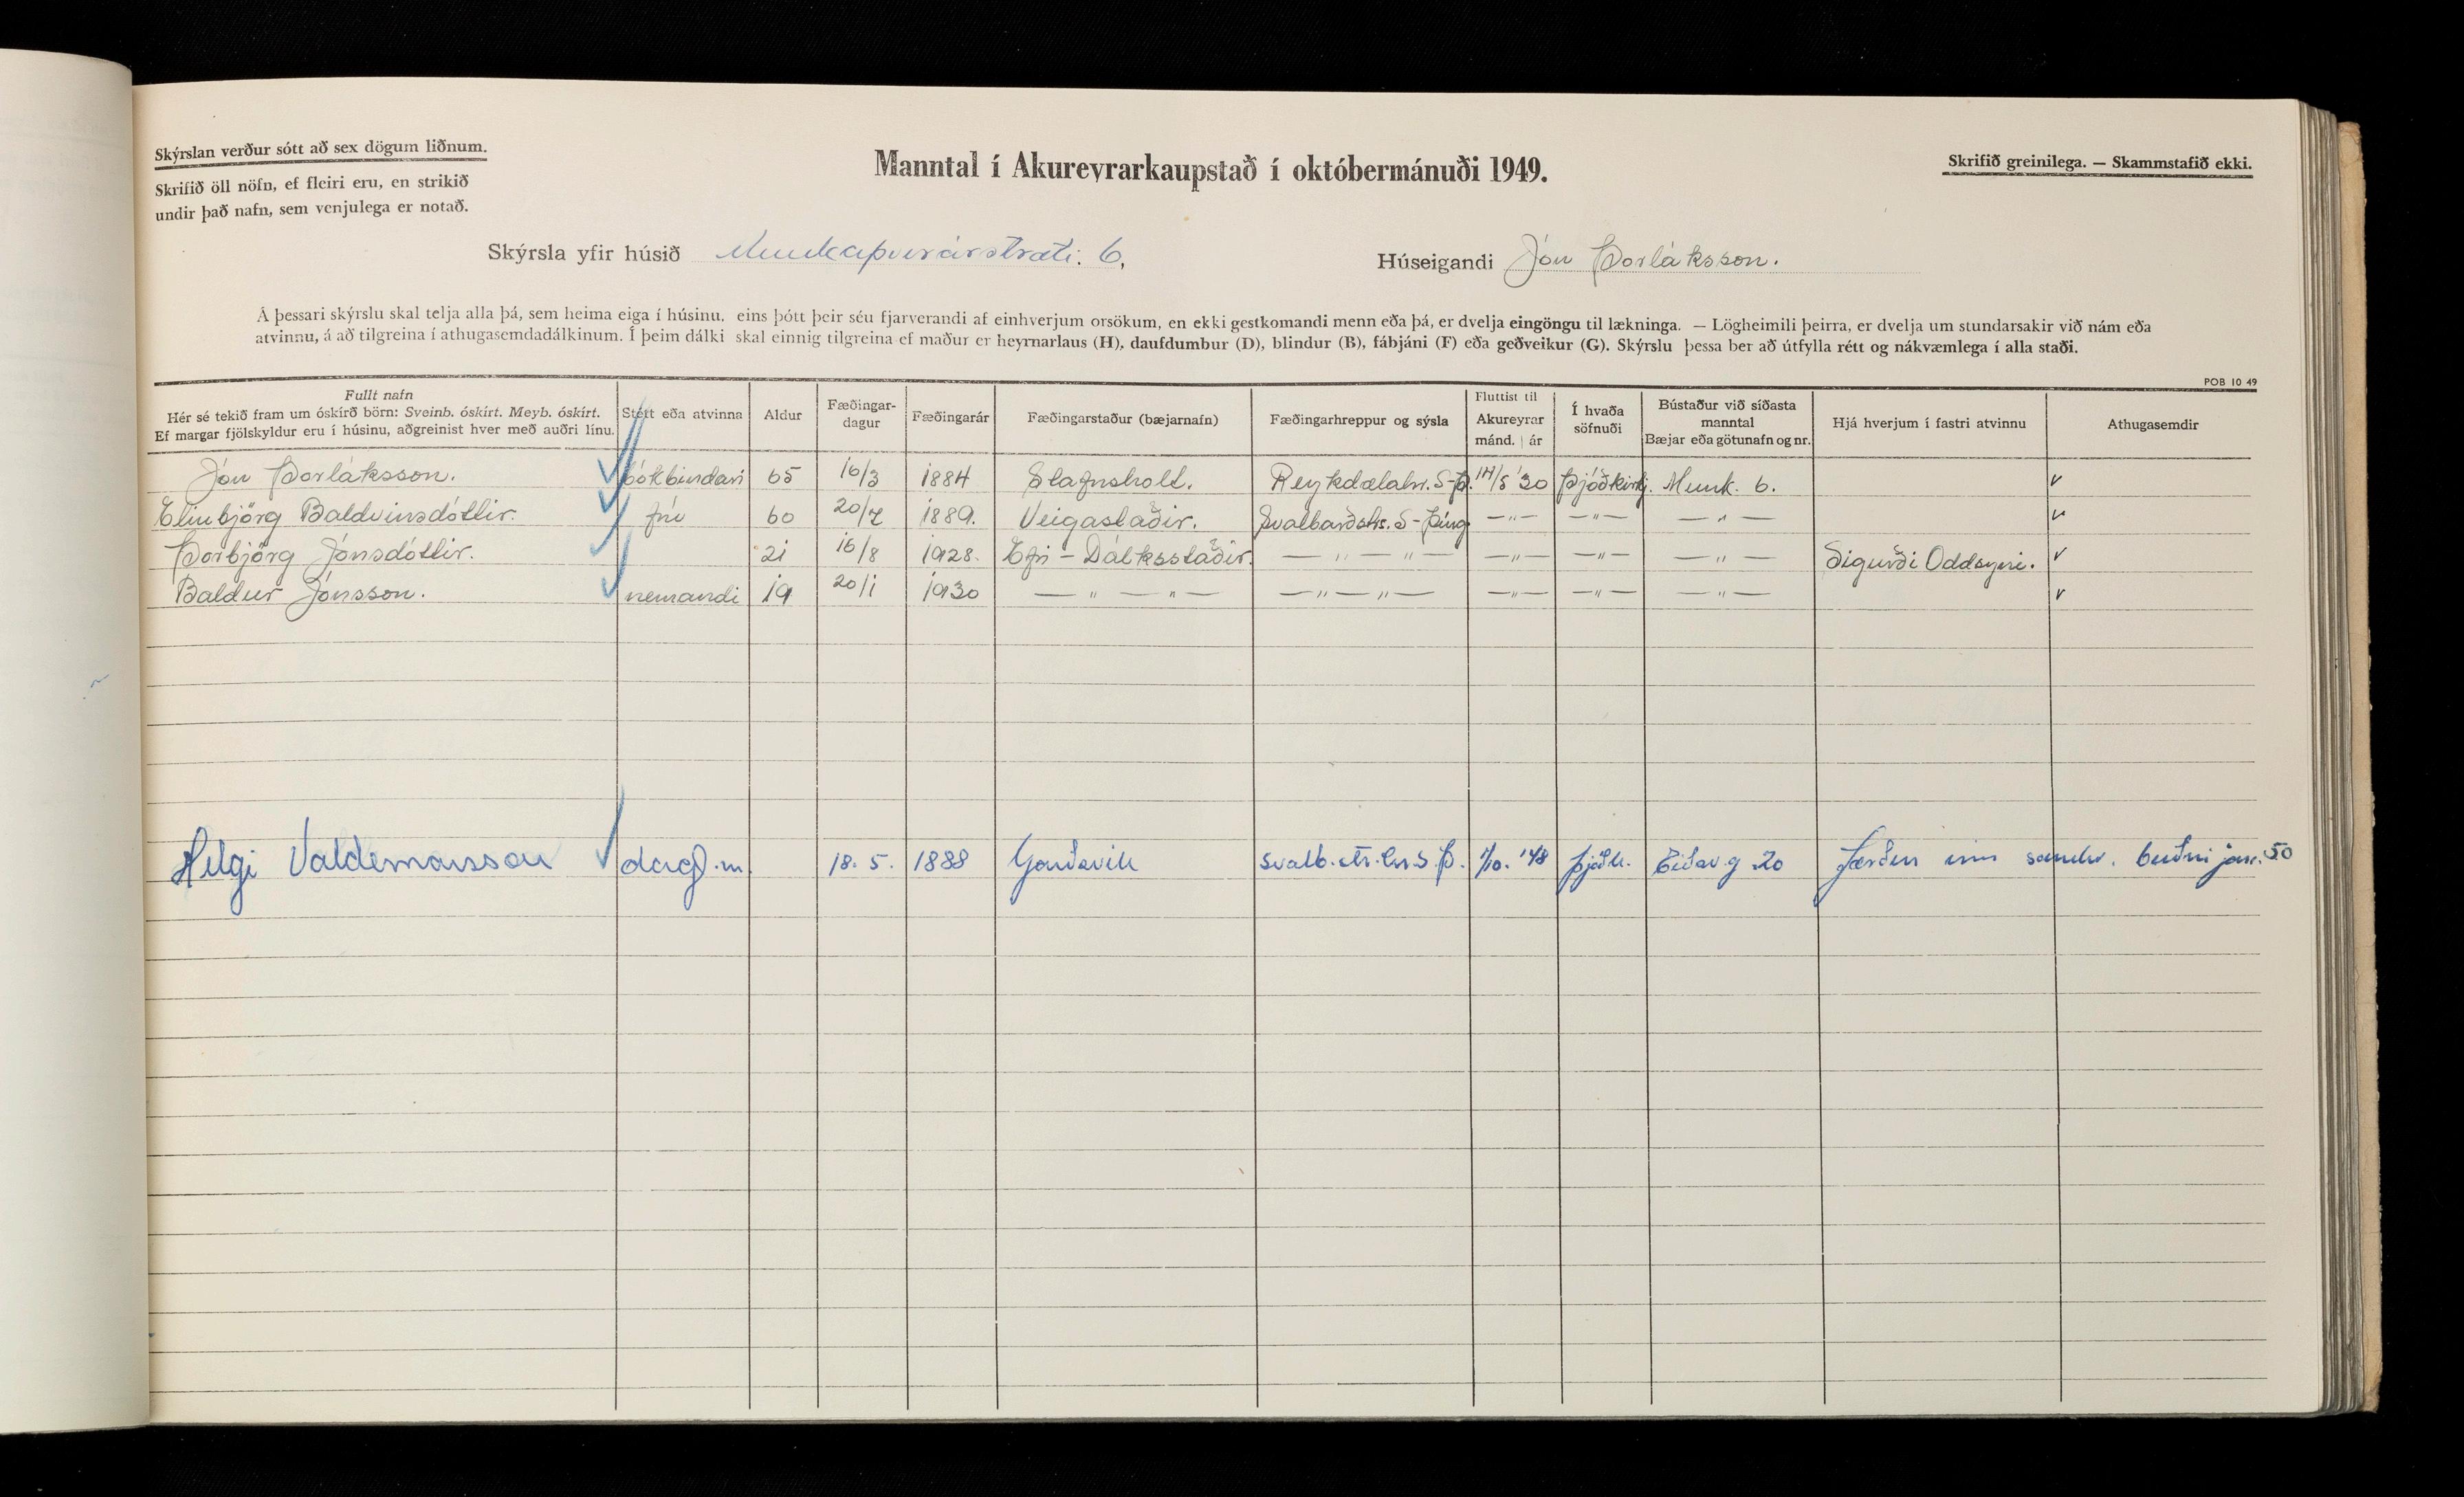 Skýrslan verður sótt að sex dögum liðnum.
Skrifið öll nöfn, ef fleiri eru, en strikið
undir það nafn, sem venjulega er notað.
Manntal í Akureyrarkaupstað í októbermánuði 1949.
Skrifið greinilega. — Skammstafið ekki.
Skýrsla yfir húsið Munkaþverárstræti. 6.
Húseigandi Jón Þorláksson.
Á þessari skýrslu skal telja alla þá, sem heima eiga í húsinu, eins þótt þeir séu fjarverandi af einhverjum orsökum, en ekki gestkomandi menn eða þá, er dvelja eingöngu til lækninga. — Lögheimili þeirra, er dvelja um stundarsakir við nám eða
atvinnu, á að tilgreina í athugasemdadálkinum. Í þeim dálki skal einnig tilgreina ef maður er heyrnarlaus (H), daufdumbur (D), blindur (B), fábjáni (F) eða geðveikur (G). Skýrslu þessa ber að útfylla rétt og nákvæmlega í alla staði.
POB 10 49
Fullt nafn
Hér sé tekið fram um óskírð börn: Sveinb. óskírt. Meyb. óskírt.
Ef margar fjölskyldur eru í húsinu, aðgreinist hver með auðri línu.
Stétt eða atvinna
Aldur
Fæðingar-
dagur
Fæðingarár
Fæðingarstaður (bæjarnafn)
Fæðingarhreppur og sýsla
Fluttist til
Akureyrar
mánd. | ár
Í hvaða
söfnuði
Bústaður við síðasta
manntal
Bæjar eða götunafn og nr.
Hjá hverjum í fastri atvinnu
Athugasemdir
Jón Þorláksson. bókbindari 65 16/3 1884 Stafnsholt. Reykdælahr. S-Þ. 14/5 '30 Þjóðkirkj. Munk. 6.
Elinbjörg Baldvinsdóttir. frú 60 20/7 1889. Veigastaðir. Svalbarðstr. S-Þing —"— —"— —"—
Þorbjörg Jónsdóttir. 21 16/8 1928. Efri-Dálksstaðir. —"—"— —"— —"— —"— Sigurði Oddsyni.
Baldur Jónsson. nemandi 19 20/1 1930 —"—"— —"—"— —"— —"— —"—
Helgi Valdemarsson dagl.m. 18. 5. 1888 Garðsvík Svalb.str.hr. S Þ. 1/10. '48 þjóðk. Eiðsv.g 20 Færður inn samkv. beiðni jan. 50